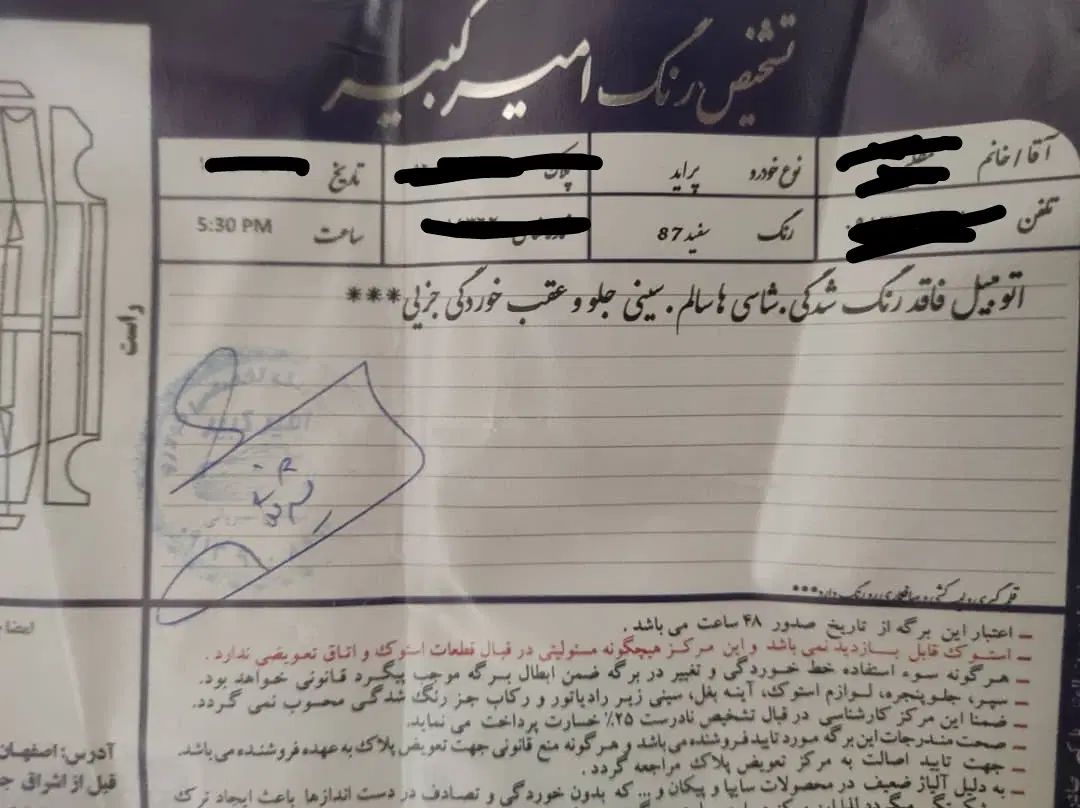 تشخیص رنگ امیرکبیر
آقا / خانم
نوع خودرو پراید
پلاک
تاریخ
تلفن
رنگ سفید 87
ساعت 5:30 PM
راست
اتومبیل فاقد رنگ شدگی.شاسی ها سالم.سینی جلو و عقب خوردگی جزیی***
امیر کبیر
ــ اعتبار این برگه از تاریخ صدور ۴۸ ساعت می باشد .
ــ استوک قابل بازدید نمی باشد و این مرکز هیچگونه مسئولیتی در قبال قطعات استوک و اتاق تعویضی ندارد .
ــ هرگونه سوء استفاده خط خوردگی و تغییر در برگه ضمن ابطال برگه موجب پیگرد قانونی خواهد بود.
ــ سپر، جلوپنجره، لوازم استوک، آینه بغل، سینی زیر رادیاتور و رکاب جز رنگ شدگی محسوب نمی گردد.
ــ ضمنا این مرکز کارشناسی در قبال تشخیص نادرست ۲۵٪ خسارت پرداخت می نماید.
ــ صحت مندرجات این برگه مورد تایید فروشنده می باشد و هرگونه منع قانونی جهت تعویض پلاک به عهده فروشنده می باشد.
ــ جهت تایید اصالت به مرکز تعویض پلاک مراجعه گردد .
ــ به دلیل آلیاژ ضعیف در محصولات سایپا و پیکان و ... که بدون خوردگی و تصادف در دست اندازها باعث ایجاد ترک
آدرس: اصفهان
قبل از اشراق